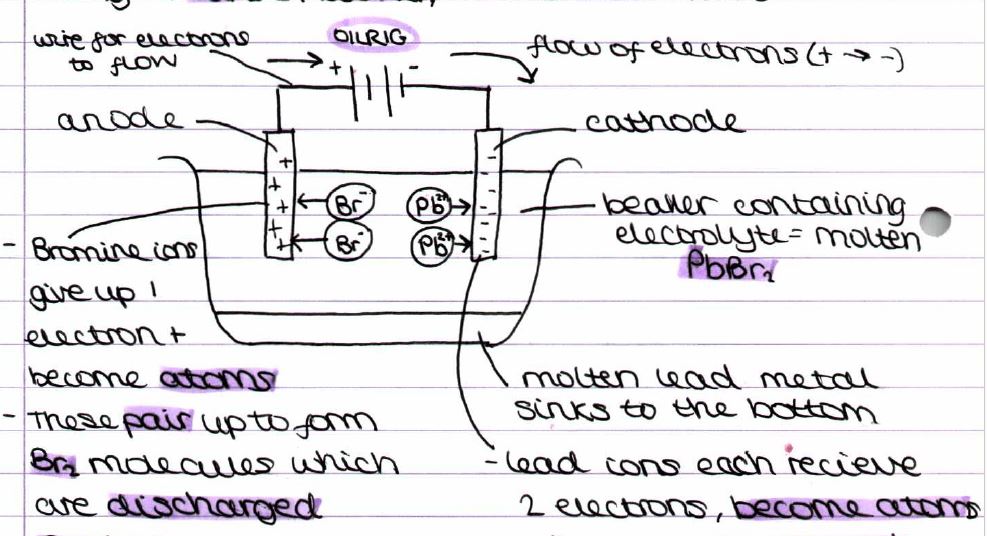 wire for electrons
to flow
OILRIG
flow of electrons (+ → -)
+
-
anode
cathode
+
+
+
+
+
-
-
-
-
-
-
-
Br⁻
Br⁻
Pb²⁺
Pb²⁺
beaker containing
electrolyte = molten
PbBr₂
- Bromine ions
give up 1
electron +
become atoms
- These pair up to form
Br₂ molecules which
are discharged
molten lead metal
sinks to the bottom
- lead ions each recieve
2 electrons, become atoms